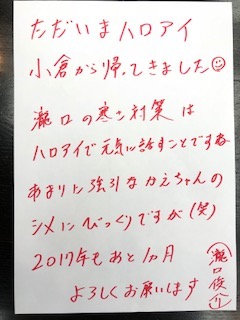 ただいまハロアイ
小倉から帰ってきました
瀧口の寒さ対策は
ハロアイで元気に話すことですね
あまりに強引なかえちゃんの
シメにびっくりですが(笑)
2017年もあと1カ月
よろしくお願いします
瀧口俊介